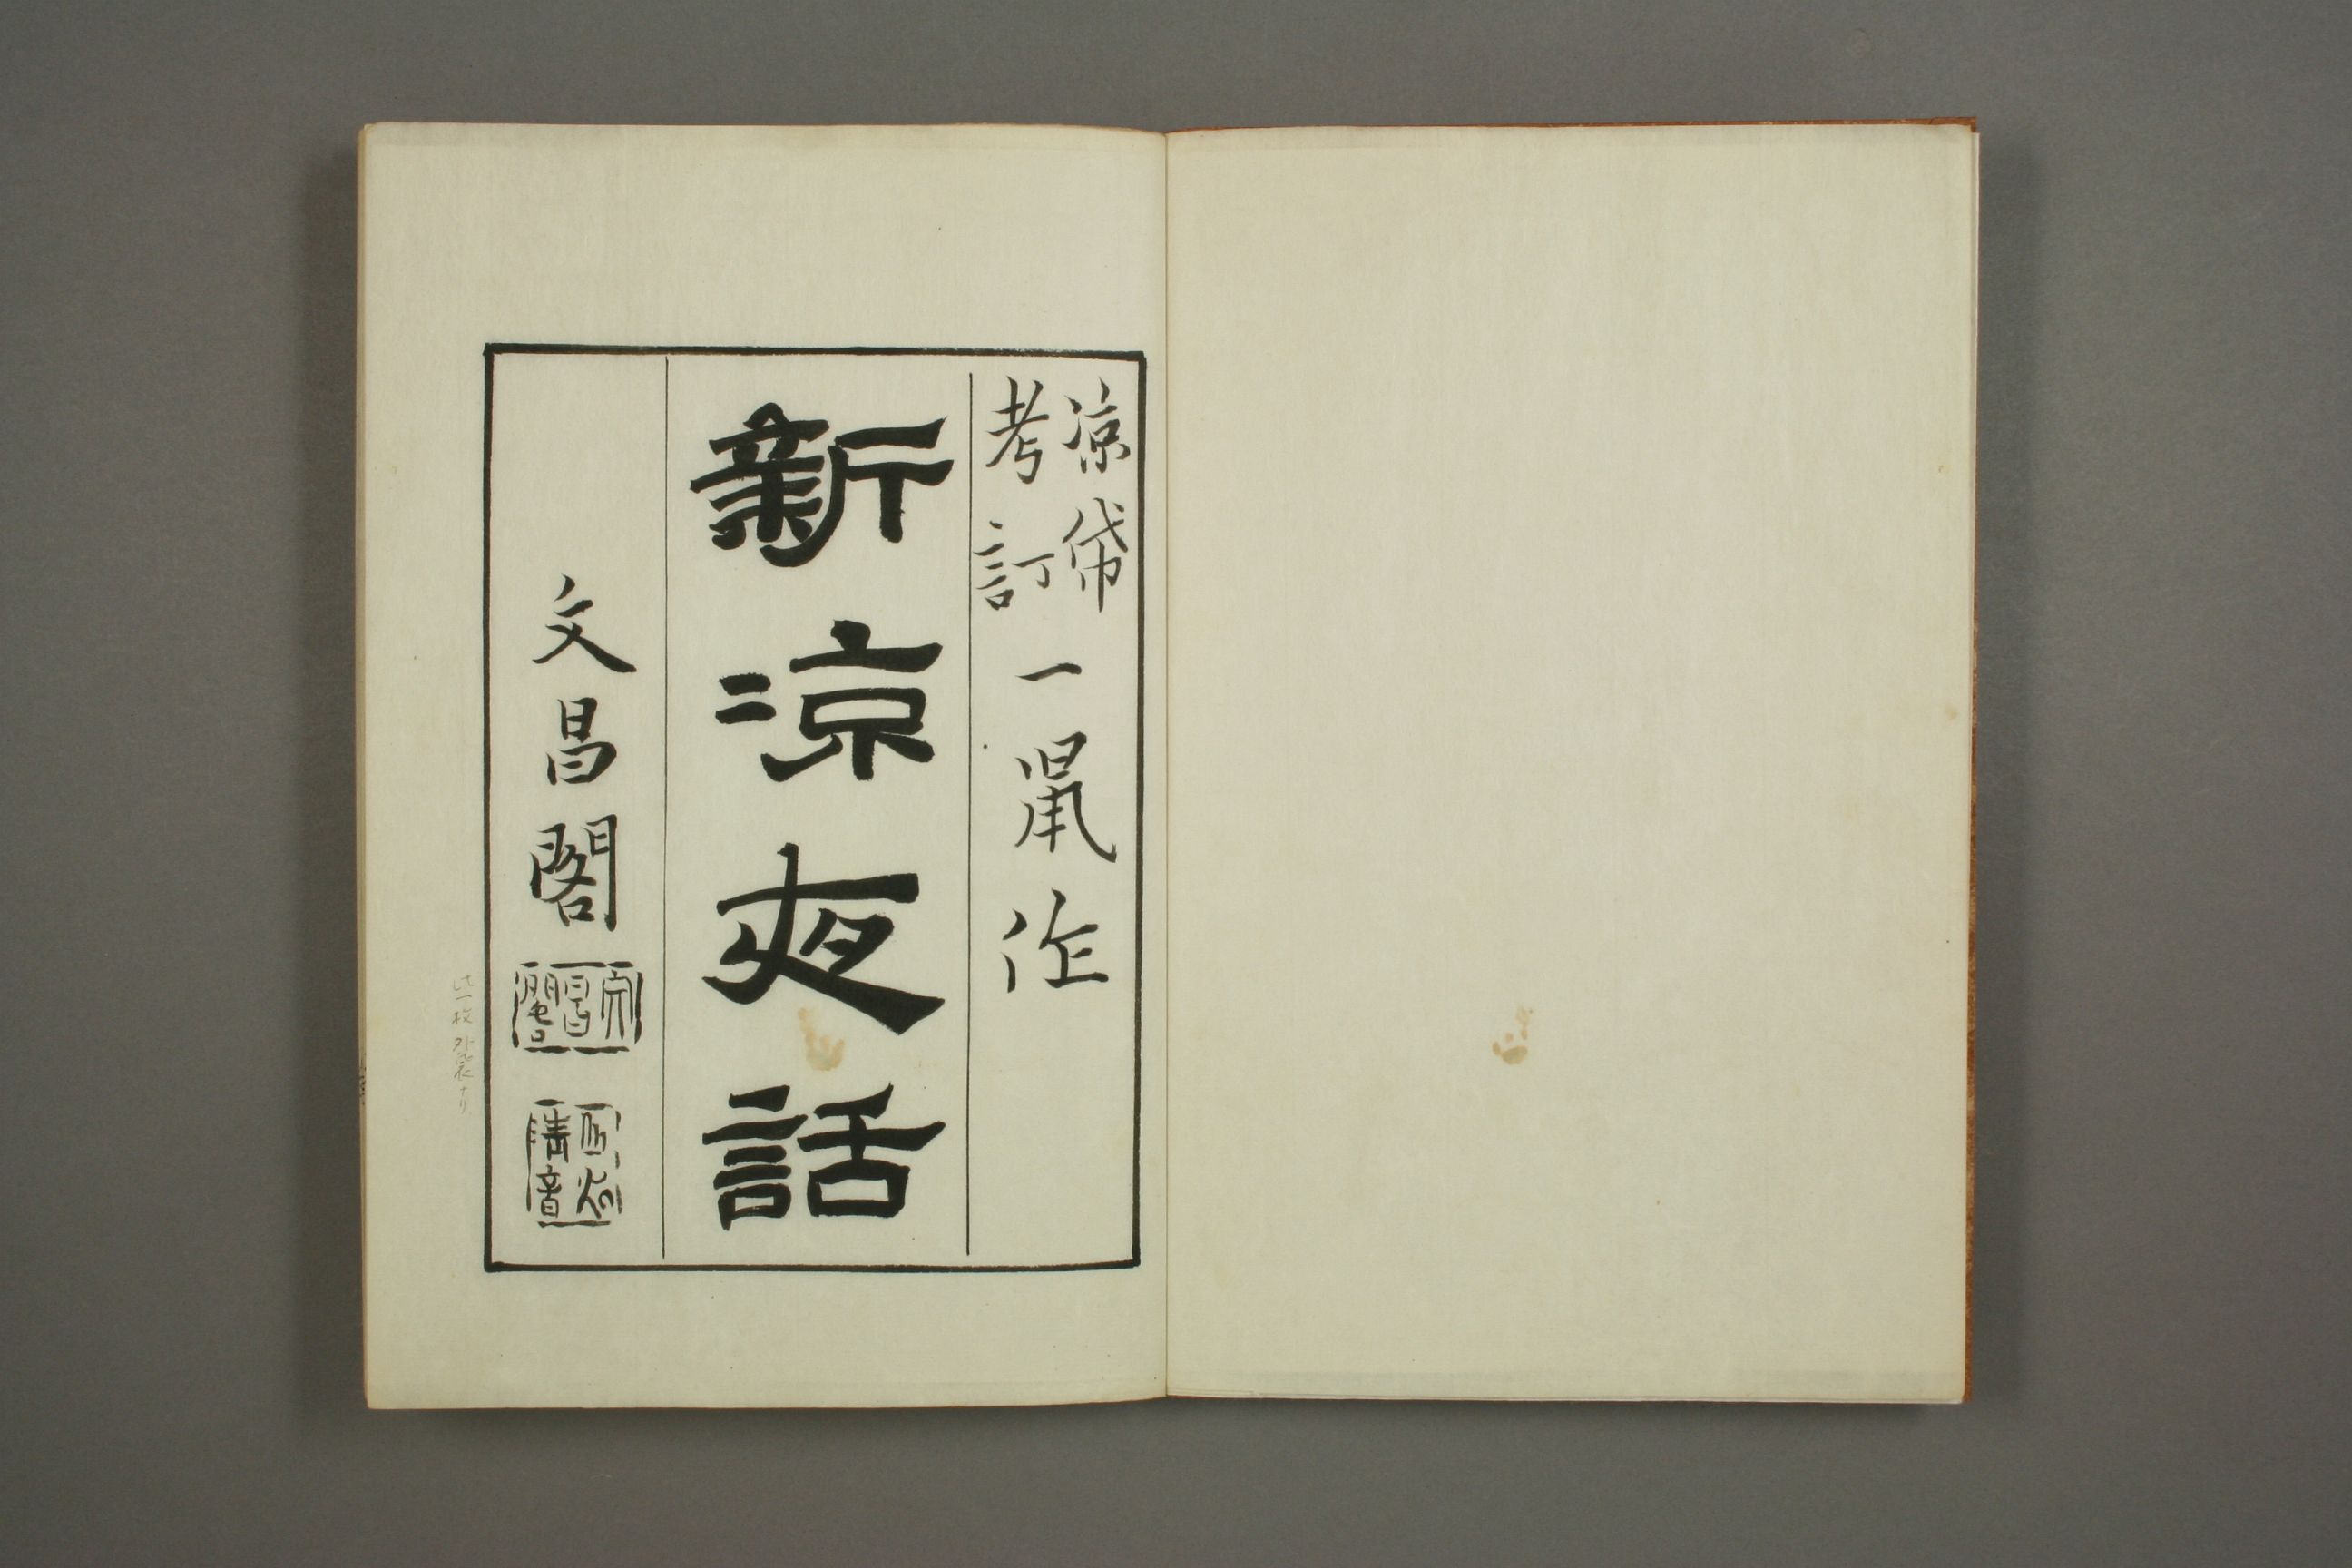 涼帒
考訂
一鼠作
新凉夜話
文昌閣
此一枚外袋ナリ